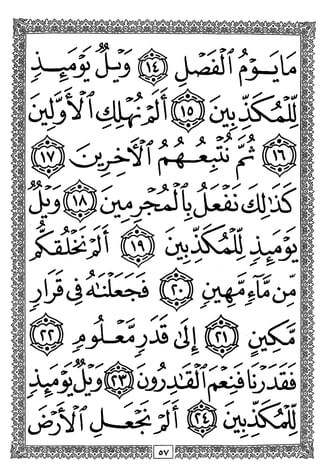 مَا يَوۡمُ ٱلۡفَصۡلِ ١٤ وَيۡلٞ يَوۡمَئِذٖ
لِّلۡمُكَذِّبِينَ ١٥ أَلَمۡ نُهۡلِكِ ٱلۡأَوَّلِينَ
١٦ ثُمَّ نُتۡبِعُهُمُ ٱلۡأٓخِرِينَ ١٧
كَذَٰلِكَ نَفۡعَلُ بِٱلۡمُجۡرِمِينَ ١٨ وَيۡلٞ
يَوۡمَئِذٖ لِّلۡمُكَذِّبِينَ ١٩ أَلَمۡ نَخۡلُقكُّم
مِّن مَّآءٖ مَّهِينٖ ٢٠ فَجَعَلۡنَٰهُ فِي قَرَارٖ
مَّكِينٍ ٢١ إِلَىٰ قَدَرٖ مَّعۡلُومٖ ٢٢
فَقَدَرۡنَا فَنِعۡمَ ٱلۡقَٰدِرُونَ ٢٣ وَيۡلٞ يَوۡمَئِذٖ
لِّلۡمُكَذِّبِينَ ٢٤ أَلَمۡ نَجۡعَلِ ٱلۡأَرۡضَ
٥٧